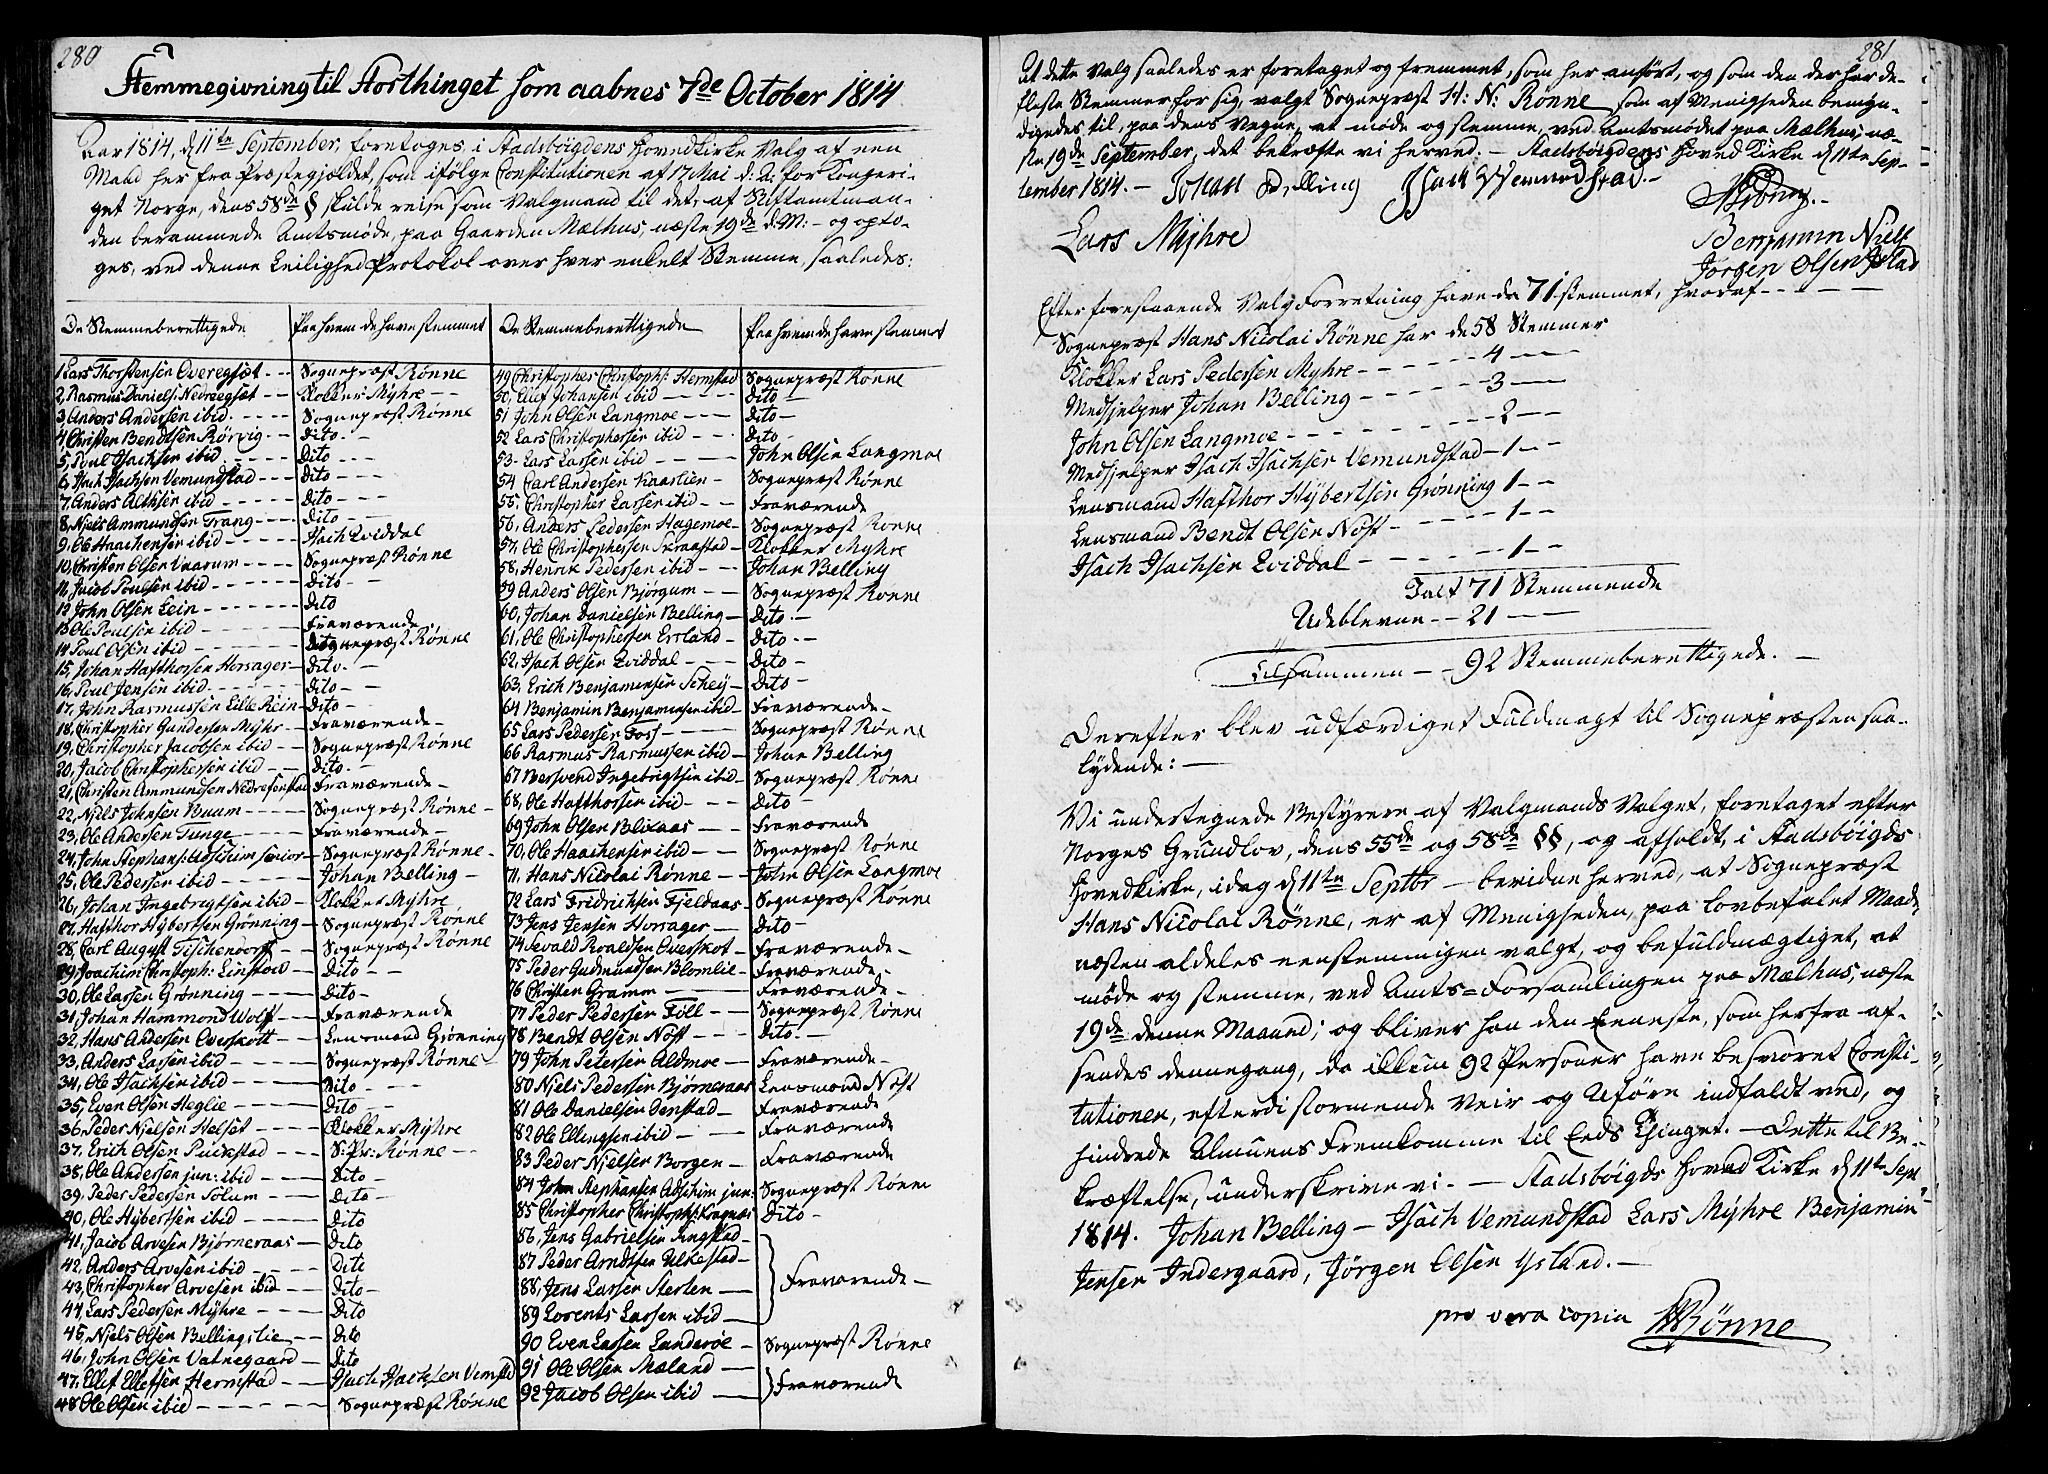 280
Stemmegivning til Storthinget som aabnes 7de October 1814
Aar 1814, d 11te September, foretoges, i Stadsböigdens Hovedkirke Valg af een
Mand her fra Præstegjældet, som ifölge Constitutionen af 17 Mai d: A: for Kongeri-
get Norge, dens 58de § skulde reise som Valgmand til det, af Stiftamtman-
den berammede Amtsmöde, paa Gaarden Mælhus, næste 19de d: M: - og opto-
ges, ved denne Leilighed Protokol over hver enkelt Stemme, saaledes:
De Stemmeberettigede
Paa hvem de have stemmet
1 Lars Thorstensen Overegsæt - Sognepræst Rönne
2, Rasmus Daniels: Nedreegsæt - Klokker Myhre
3, Anders Andersen ibid: - Sognepræst Rönne
4 Christen Bendtsen Rörvig - Dito
5, Poul Isachsen ibid - Dito
6, Isach Isachsen Vemundstad - Dito
7, Anders ibid - Dito
8, Niels Ammundsen Trang - Dito
9, Ole Haachensen ibid - Isach Qviddal
10, Christen Olsen Vaarum - Sognepræst Rönne
11, Jacob Poulsen ibid - Dito
12 John Olsen Lein - Dito
13 Ole Poulsen ibid - Fraværende
14 Poul Olsen ibid - Sognepræst Rönne
15, Johan Hafthorsen Horsager - Dito
16, Poul Jensen ibid - Dito
17, John Rasmussen Lille Rein - Dito
18, Christopher Gundersen Myhr - Fraværende
19, Christopher Jacobsen ibid - Sognepræst Rönne
20, Jacob Christophersen ibid - Dito
21, Christen Ammundsen - Fraværende
22, Niels Johnsen Buum - Sognepræst Rönne
23, Ole Andersen Tunge - Fraværende
24, John Stephans: Adschim senior - Sognepræst Rönne
25, Ole Pedersen ibid - Johan Belling
26, Johan Ingebrigtsen ibid - Klokker Myhre
27, Hafthor Hybertsen Grönning - Sognepræst Rönne
28, Carl August Tischendorff - Sognepræst Rönne
29, Joachim Christoph: Linstow - Dito
30, Ole Larsen Grönning - Dito
31, Johan Hammond Wolff - Fraværende
32, Hans Andersen Overskott - Lensmand Grönning
33, Anders Larsen ibid - Sognepræst Rönne
34, Ole Isachsen ibid - Dito
35, Even Olsen Heglie - Dito
36, Peder Nielsen Helset - Klokker Myhre
37, Erich Olsen Pukstad - S: Pr: Rönne
38, Ole Andersen jun: ibid - Dito
39, Peder Pedersen Solum - Dito
40, Ole Hybertsen ibid - Dito
41, Jacob Arvesen Björneraas - Dito
42, Anders Arvesen ibid - Dito
43, Christopher Arvesen ibid - Dito
44, Lars Pedersen Myhre - Dito
45, Niels Olsen Bellingslie - Dito
46, John Olsen Vatnegaard - Dito
47, Ellef Ellefsen Hermstad - Isach Isachsen Vemstad
48 Ole Olsen ibid - Sognepræst Rönne
De Stemmeberettigede
Paa hvem de have stemmet
49 Christopher Christoph: Hermstad - Sognepræst Rönne
50, Ellef Johansen ibid - Dito
51 John Olsen Langmoe - Dito
52 Lars Christophersen ibid - Dito
53 Lars Larsen ibid - John Olsen Langmoe
54 Carl Andersen Kaarlien - Sognepræst Rönne
55, Christopher Larsen ibid - Fraværende
56, Anders Pedersen Hagemoe - Sognepræst Rönne
57, Ole Christophersen Skraastad - Klokker Myhre
58, Henrik Pedersen ibid - Johan Belling
59 Anders Olsen Björgum - Sognepræst Rönne
60, Johan Danielsen Belling - Dito
61, Ole Christophersen Errland - Dito
62, Isach Olsen Qviddal - Dito
63, Erich Benjaminsen Schey - Dito
64 Benjamin Benjaminsen ibid - Fraværende
65 Lars Pedersen Foss - Sognepræst Rönne
66 Rasmus Rasmussen ibid - Johan Belling
67 Bersvend Ingebrigtsen ibid - Sognepræst Rönne
68, Ole Hafthorsen ibid - Dito
69 John Olsen Blixaas - Fraværende
70, Ole Haachensen ibid - Sognepræst Rönne
71, Hans Nicolai Rönne - John Olsen Langmoe
72 Lars Fridrichsen Fjeldaas - Sognepræst Rönne
73 Jens Jensen Horsager - Dito
74 Sevald Roaldsen Overskot - Fraværende
75 Peder Gudmundsen Blomlie - Fraværende
76 Christen Gramm - Fraværende
77 Peder Pedersen Föll - Sognepræst Rönne
78 Bendt Olsen Nöst - Dito
79 John Petersen Aldmoe - Fraværende
80 Niels Pedersen Björneraas - Lensmand Nöst
81 Ole Danielsen Oenstad - Fraværende
82 Ole Ellingsen ibid - Fraværende
83 Peder Nielsen Borgen - Fraværende
84 John Stephansen Adschim jun: Sognepræst Rönne
85 Christopher Christoph: Kragnæs Dito
86, Jens Gabrielsen Ringstad
87 Peder Arndtsen Ulkestad
88, Jens Larsen Sterten - Fraværende
89 Lorents Larsen ibid
90 Even Larsen Landeröe - Sognepræst Rönne
91 Ole Olsen Mæland
92 Jacob Olsen ibid - Fraværende
281
At dette Valg saaledes er foretaget og fremmet, som her anfört, og som den der har de
fleste Stemmer for sig, valgt Sognepræst H: N: Rönne som af Menigheden bemyn-
digedes til, paa dens Vegne, at möde og stemme, ved Amtsmödet paa Mælhus, næ-
ste 19de September, det bekræfte vi herved. - Stadsböigdens Hoved Kirke d 11te Sep-
tember 1814. - Johan Belling Isach Vemundstad.
HRönne.
Lars Myhre
Benjamin Niels
Jörgen Olsen Istad
Efter forestaaende Valg Forretning have da 71 stemmet, hvoraf
Sognepræst Hans Nicolai Rönne har de 58 Stemmer
Klokker Lars Pedersen Myhre - 4
Medhjelper Johan Belling - 3
John Olsen Langmoe - 2
Medhjelper Isach Isachsen Vemundstad - 1
Lensmand Hafthor Hybertsen Grönning 1
Lensmand Bendt Olsen Nöst - 1
Isach Isachsen Qviddal - 1
Ialt 71 Stemmende
Udeblevne - 21
Tilsammen - 92 Stemmeberettigede.
Derefter blev udfærdiget Fuldmagt til Sognepræsten saa-
lydende:
Vi undertegnede Bestyrere af Valgmands Valget, foretaget efter
Norges Grundlov, dens 55de og 58de §§, og afholdt, i Stadsböigds
Hovedkirke, idag d 11te Septbr - bevidne herved, at Sognepræst
Hans Nicolai Rönne, er af Menigheden, paa lovbefalet Maade,
næsten aldeles eenstemmigen valgt, og befuldmægtiget, at
möde og stemme, ved Amts=Forsamlingen paa Mælhus, næste
19de denne Maaned; og bliver han den Eeneste, som herfra af-
sendes dennegang, da ikkun 92 Personer have besvoret Consti-
tutionen, efterdi stormende Veir og Uföre indfaldt ved, og
hindrede Almuens Fremkomme til Eeds Thinget. - Dette til Be-
kræftelse, underskrive vi. - Stadsböigds Hoved Kirke d 11te Sept
1814. Johan Belling - Isach Vemundstad Lars Myhre Benjamin
Jensen Indergaard, Jörgen Olsen Ystand.
pro vera copia HRönne